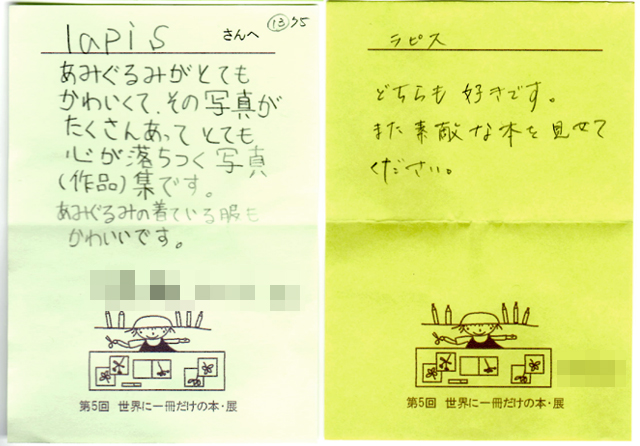 ⑬ワ5
lapis さんへ
あみぐるみがとても
かわいくて、その写真が
たくさんあって とても
心が落ちつく写真
(作品)集です。
あみぐるみの着ている服も
かわいいです。
第5回 世界に一冊だけの本・展
ラピス
どちらも 好きです。
また 素敵な本を見せて
ください。
第5回 世界に一冊だけの本・展